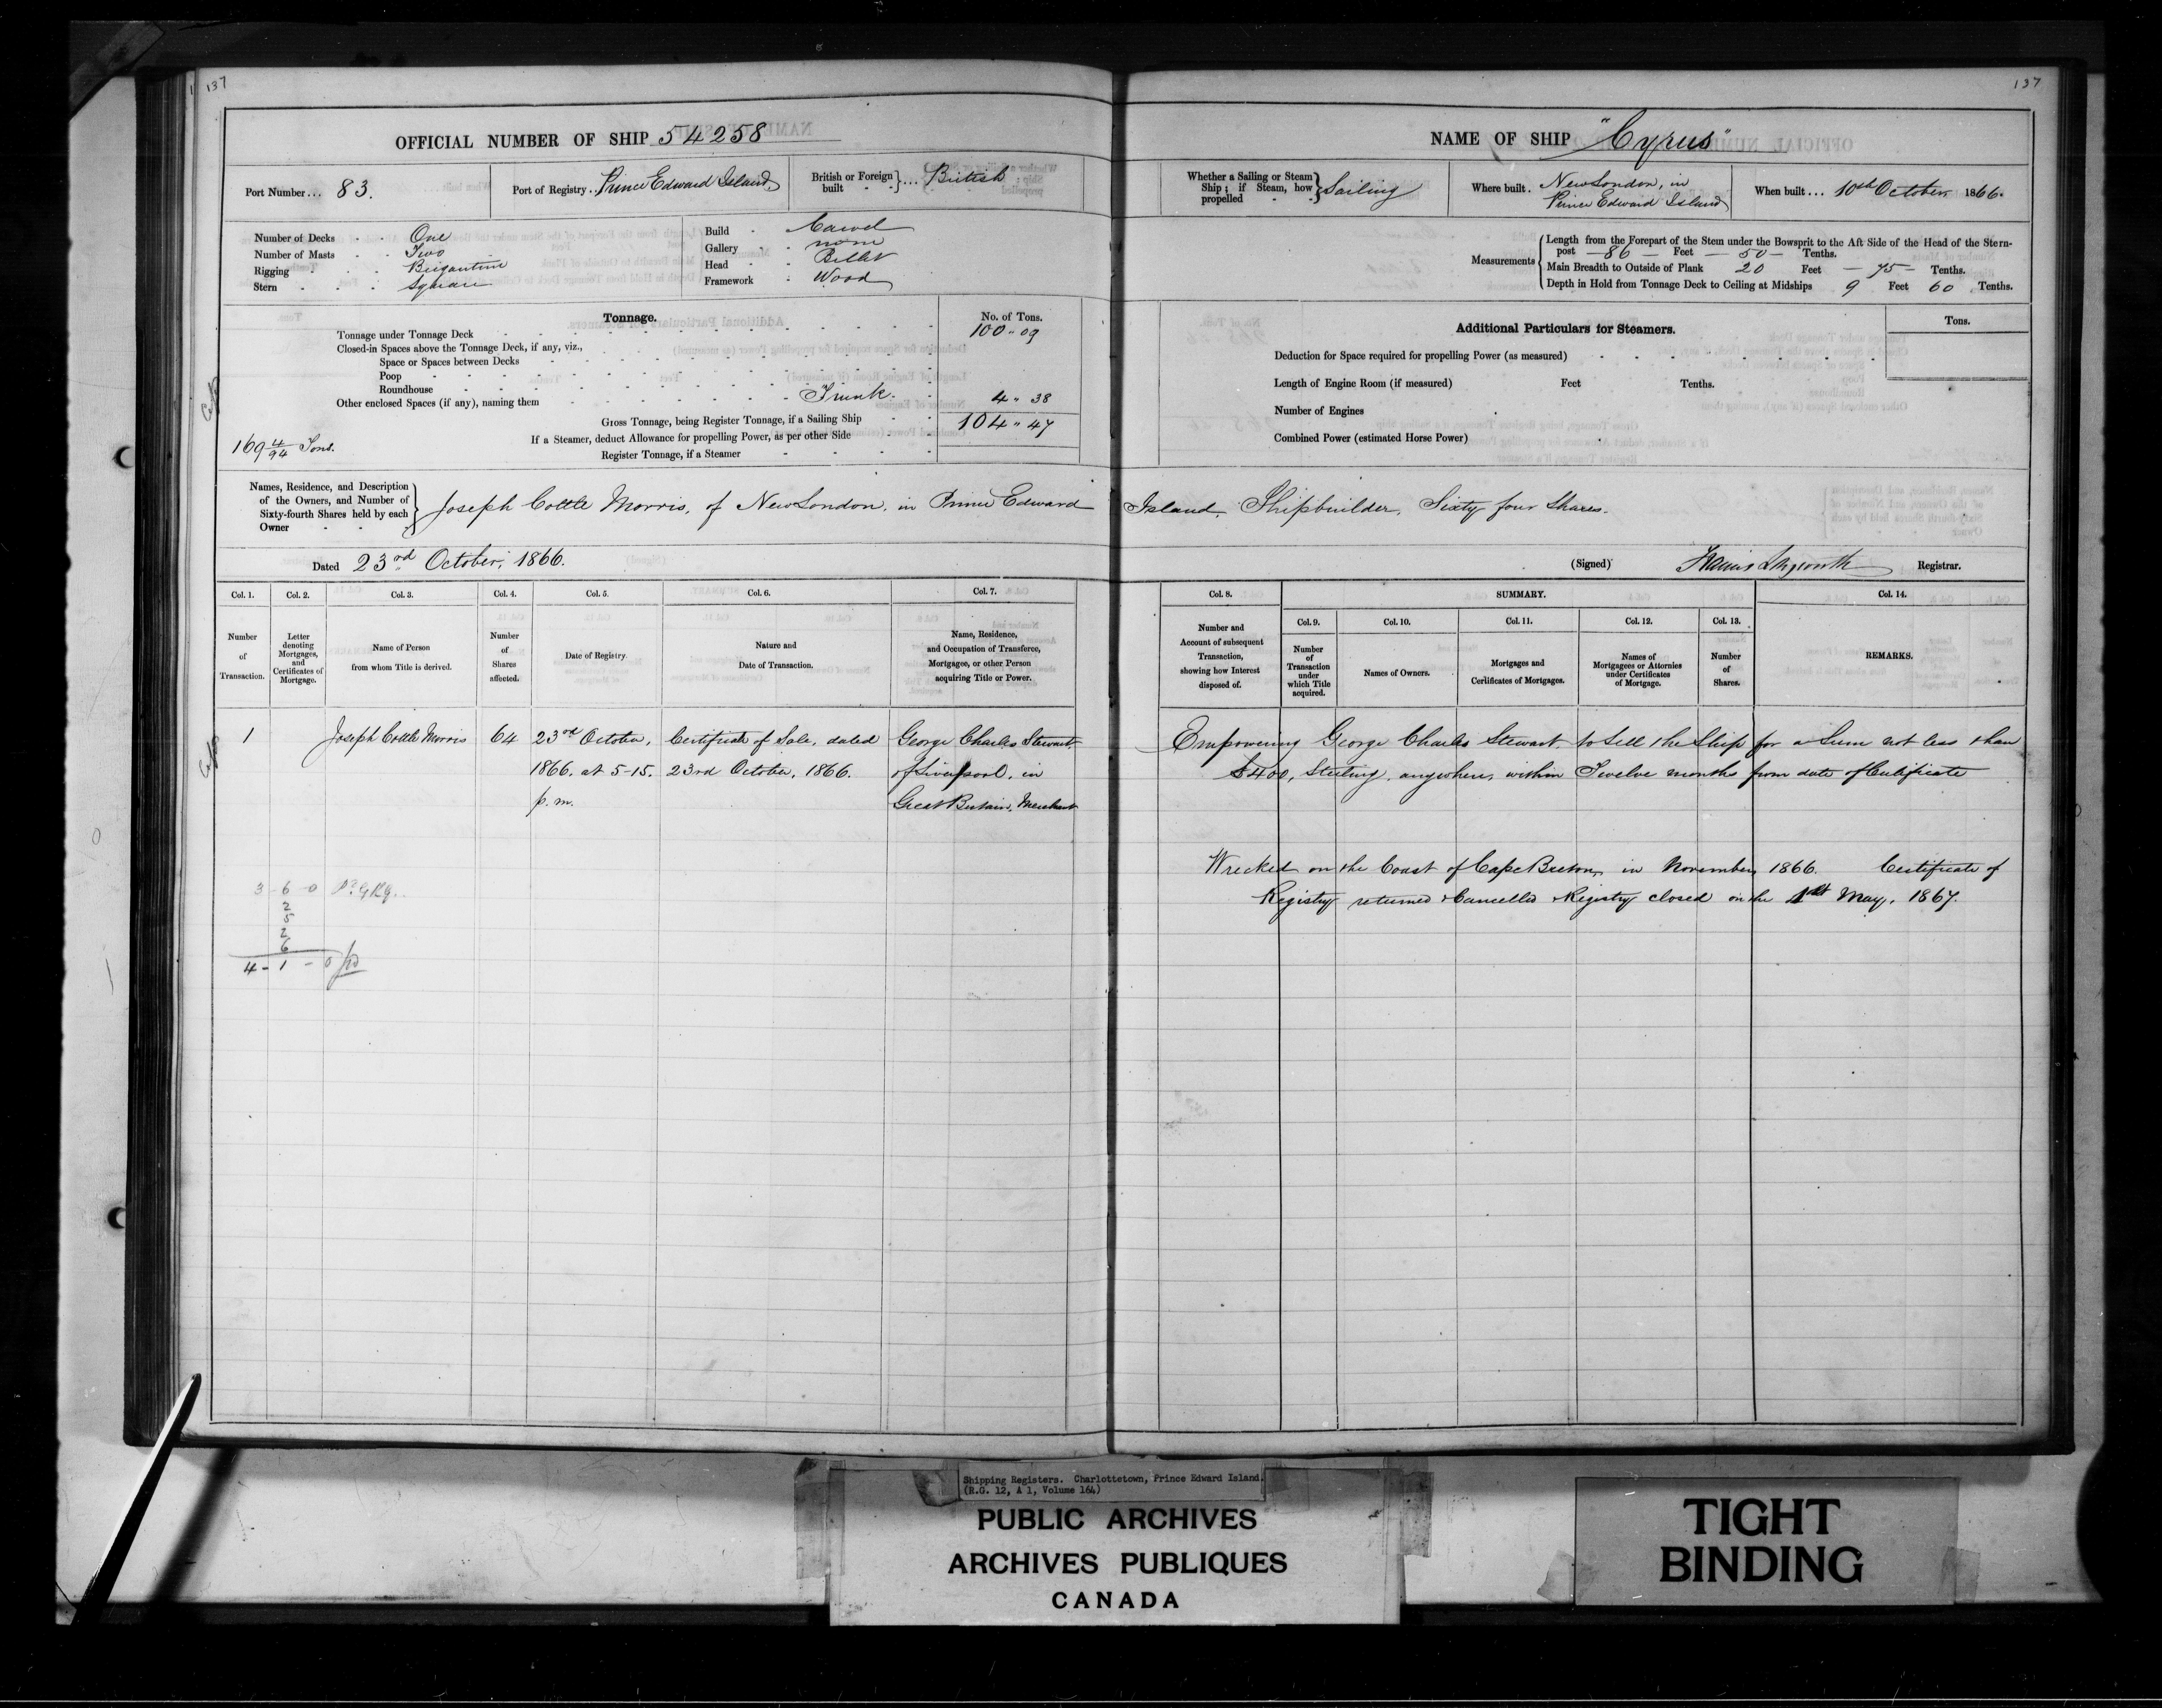 137
137
OFFICIAL NUMBER OF SHIP 54258
Port Number... 83.
Port of Registry. Prince Edward Island,
British or Foreign built }... British
Number of Decks One
Number of Masts Two
Rigging Brigantine
Stern Square
Build Carvel
Gallery none
Head Billet
Framework Wood
Tonnage.
No. of Tons.
Tonnage under Tonnage Deck 100 " 09
Closed-in Spaces above the Tonnage Deck, if any, viz.,
Space or Spaces between Decks
Poop
Roundhouse
Other enclosed Spaces (if any), naming them Trunk. 4 " 38
Gross Tonnage, being Register Tonnage, if a Sailing Ship 104 " 47
If a Steamer, deduct Allowance for propelling Power, as per other Side
Register Tonnage, if a Steamer
169 4/94 Tons.
NAME OF SHIP "Cyrus"
Whether a Sailing or Steam Ship; if Steam, how propelled } Sailing
Where built. New London, in
Prince Edward Island
When built... 10th October 1866.
Measurements
Length from the Forepart of the Stem under the Bowsprit to the Aft Side of the Head of the Stern-
post 86 Feet 50 Tenths.
Main Breadth to Outside of Plank 20 Feet 75 Tenths.
Depth in Hold from Tonnage Deck to Ceiling at Midships 9 Feet 60 Tenths.
Additional Particulars for Steamers.
Tons.
Deduction for Space required for propelling Power (as measured)
Length of Engine Room (if measured) Feet Tenths.
Number of Engines
Combined Power (estimated Horse Power)
Names, Residence, and Description
of the Owners, and Number of
Sixty-fourth Shares held by each
Owner
Joseph Cottle Morris, of New London, in Prince Edward Island, Shipbuilder, Sixty four Shares.
Dated 23rd October, 1866.
(Signed) Registrar.
Col. 1. Number of Transaction.
Col. 2. Letter denoting Mortgages, and Certificates of Mortgage.
Col. 3. Name of Person from whom Title is derived.
Col. 4. Number of Shares affected.
Col. 5. Date of Registry.
Col. 6. Nature and Date of Transaction.
Col. 7. Name, Residence, and Occupation of Transferee, Mortgagee, or other Person acquiring Title or Power.
Col. 8. Number and Account of subsequent Transaction, showing how Interest disposed of.
SUMMARY.
Col. 9. Number of Transaction under which Title acquired.
Col. 10. Names of Owners.
Col. 11. Mortgages and Certificates of Mortgages.
Col. 12. Names of Mortgagees or Attornies under Certificates of Mortgage.
Col. 13. Number of Shares.
Col. 14. REMARKS.
1 Joseph Cottle Morris 64 23rd October, Certificate of Sale, dated George Charles Stewart
1866. at 5-15. 23rd October, 1866. of Liverpool, in
p. m. Great Britain, Merchant
Empowering George Charles Stewart, to Sell the Ship for a Sum not less than
£400, Sterling, anywhere, within Twelve months from date of Certificate
Wrecked on the Coast of Cape Breton, in November, 1866. Certificate of
Registry returned & Cancelled & Registry closed on the 1st May, 1867.
3-6-0
2
5
2
6
4-1-0
Shipping Registers. Charlottetown, Prince Edward Island.
(R.G. 12, A 1, Volume 164)
PUBLIC ARCHIVES
ARCHIVES PUBLIQUES
CANADA
TIGHT
BINDING